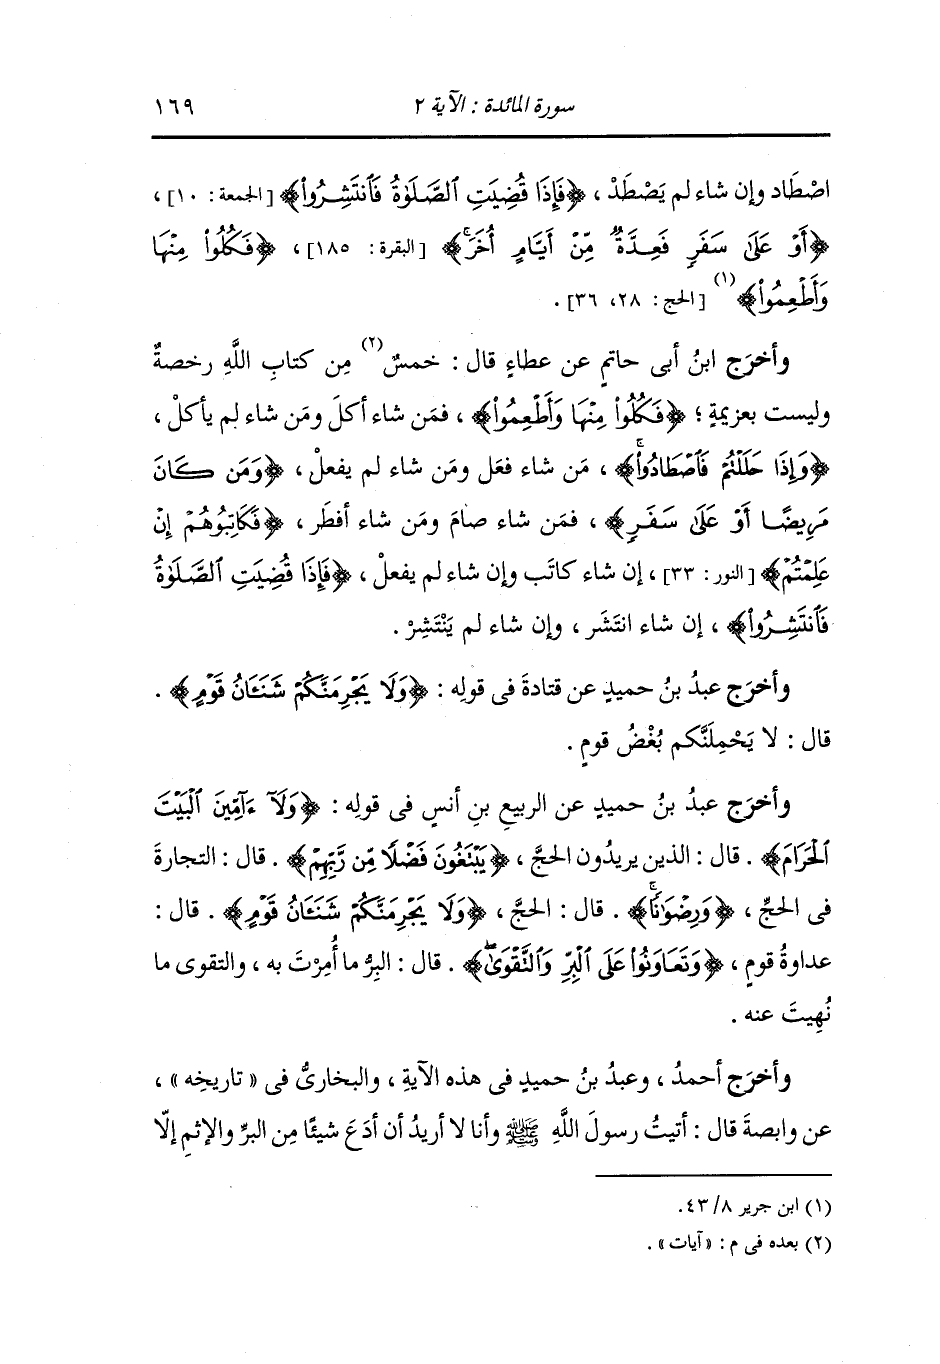 سورة المائدة : الآية ٢ ١٦٩
اصْطَاد وإن شاء لم يَصْطَدْ ، ﴿فَإِذَا قُضِيَتِ ٱلصَّلَوٰةُ فَٱنتَشِرُوا۟﴾ [الجمعة : ١٠] ،
﴿أَوْ عَلَىٰ سَفَرٍ فَعِدَّةٌ مِّنْ أَيَّامٍ أُخَرَۚ﴾ [البقرة : ١٨٥] ، ﴿فَكُلُوا۟ مِنْهَا
وَأَطْعِمُوا۟﴾(١) [الحج : ٢٨، ٣٦] .
وأخرَج ابنُ أبى حاتمٍ عن عطاءٍ قال : خمسٌ(٢) مِن كتابِ اللَّهِ رخصةٌ
وليست بعزيمةٍ ؛ ﴿فَكُلُوا۟ مِنْهَا وَأَطْعِمُوا۟﴾ ، فمَن شاء أكلَ ومَن شاء لم يأكلْ ،
﴿وَإِذَا حَلَلْتُمْ فَٱصْطَادُوا۟ۚ﴾ ، مَن شاء فعَل ومَن شاء لم يفعلْ ، ﴿وَمَن كَانَ
مَرِيضًا أَوْ عَلَىٰ سَفَرٍ﴾ ، فمَن شاء صامَ ومَن شاء أفطَر ، ﴿فَكَاتِبُوهُمْ إِنْ
عَلِمْتُمْ﴾ [النور : ٣٣] ، إن شاء كاتَب وإن شاء لم يفعلْ ، ﴿فَإِذَا قُضِيَتِ ٱلصَّلَوٰةُ
فَٱنتَشِرُوا۟﴾ ، إن شاء انتَشَر ، وإن شاء لم يَنْتَشِرْ .
وأخرَج عبدُ بنُ حميدٍ عن قتادةَ فى قولِه : ﴿وَلَا يَجْرِمَنَّكُمْ شَنَـَٔانُ قَوْمٍ﴾ .
قال : لا يَحْمِلَنَّكم بُغْضُ قومٍ .
وأخرَج عبدُ بنُ حميدٍ عن الربيعِ بنِ أنسٍ فى قولِه : ﴿وَلَآ ءَآمِّينَ ٱلْبَيْتَ
ٱلْحَرَامَ﴾ . قال : الذين يريدُون الحجَّ ، ﴿يَبْتَغُونَ فَضْلًا مِّن رَّبِّهِمْ﴾ . قال : التجارةَ
فى الحجِّ ، ﴿وَرِضْوَٰنًاۚ﴾ . قال : الحجَّ ، ﴿وَلَا يَجْرِمَنَّكُمْ شَنَـَٔانُ قَوْمٍ﴾ . قال :
عداوةُ قومٍ ، ﴿وَتَعَاوَنُوا۟ عَلَى ٱلْبِرِّ وَٱلتَّقْوَىٰۖ﴾ . قال : البِرُّ ما أُمِرْتَ به ، والتقوى ما
نُهِيتَ عنه .
وأخرَج أحمدُ ، وعبدُ بنُ حميدٍ فى هذه الآيةِ ، والبخارىُّ فى « تاريخِه » ،
عن وابصةَ قال : أتيتُ رسولَ اللَّهِ ﷺ وأنا لا أريدُ أن أدَعَ شيئًا مِن البرِّ والإثمِ إلّا
(١) ابن جرير ٨/ ٤٣.
(٢) بعده فى م : «آيات» .